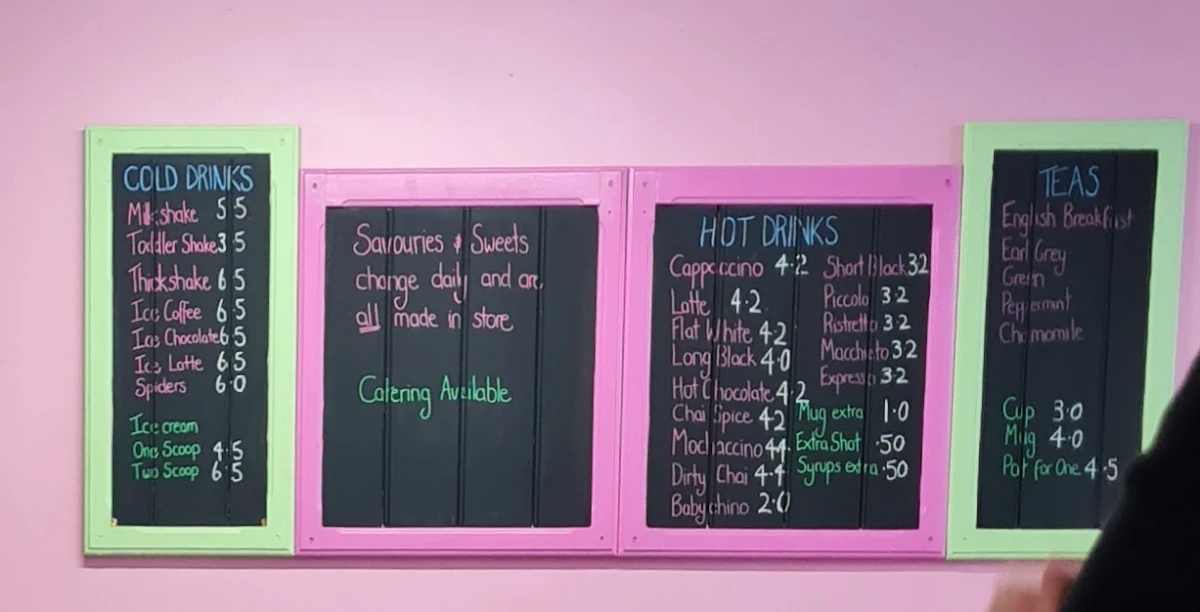 COLD DRINKS
Milkshake 5.5
Toddler Shake 3.5
Thickshake 6.5
Ice Coffee 6.5
Ice Chocolate 6.5
Ice Latte 6.5
Spiders 6.0
Ice cream
One Scoop 4.5
Two Scoop 6.5
Savouries & Sweets
change daily and are
all made in store
Catering Available
HOT DRINKS
Cappuccino 4.2
Latte 4.2
Flat White 4.2
Long Black 4.0
Hot Chocolate 4.2
Chai Spice 4.2
Mochaccino 4.4
Dirty Chai 4.4
Babychino 2.0
Short Black 3.2
Piccolo 3.2
Ristretto 3.2
Macchiato 3.2
Expresso 3.2
Mug extra 1.0
Extra Shot .50
Syrups extra .50
TEAS
English Breakfast
Earl Grey
Green
Peppermint
Chamomile
Cup 3.0
Mug 4.0
Pot for One 4.5